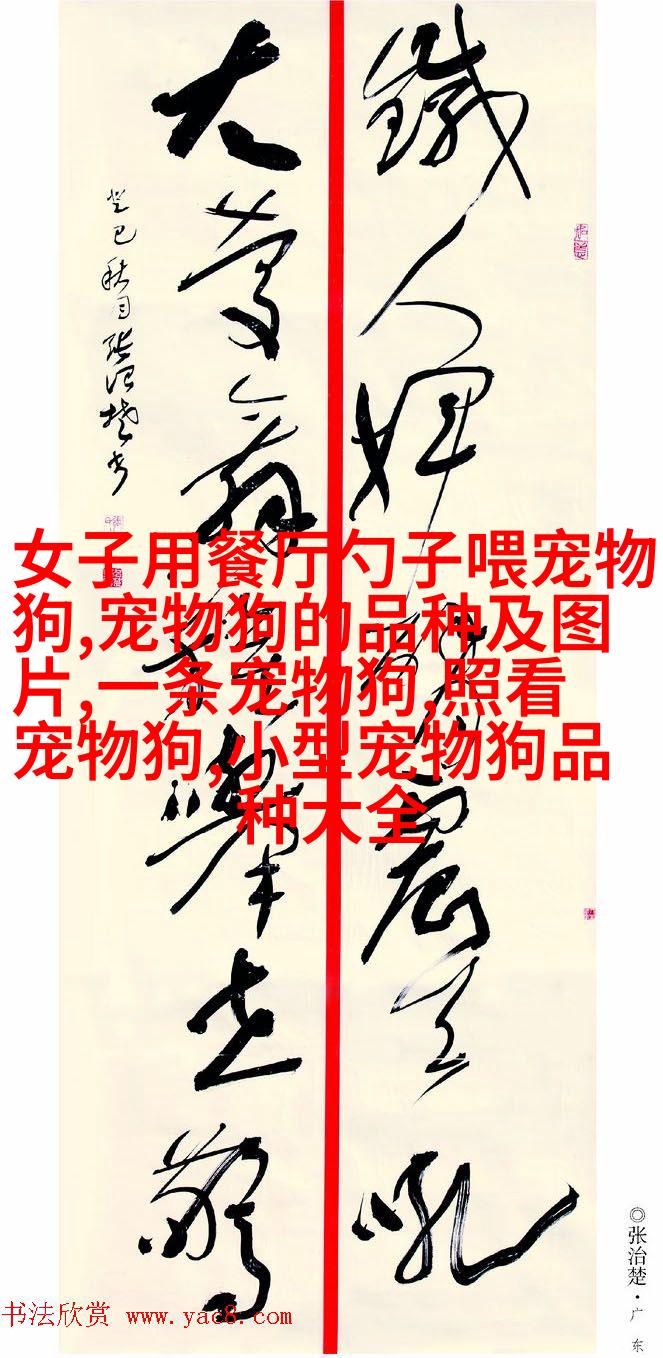 鐵人揮震天吼
大慶舉世驚
癸巳秋月張治楚書
女子用餐厅勺子喂宠物
狗,宠物狗的品种及图
片,一条宠物狗,照看
宠物狗,小型宠物狗品
种大全
◎张治楚·广东
书法欣赏 www.yac8.com